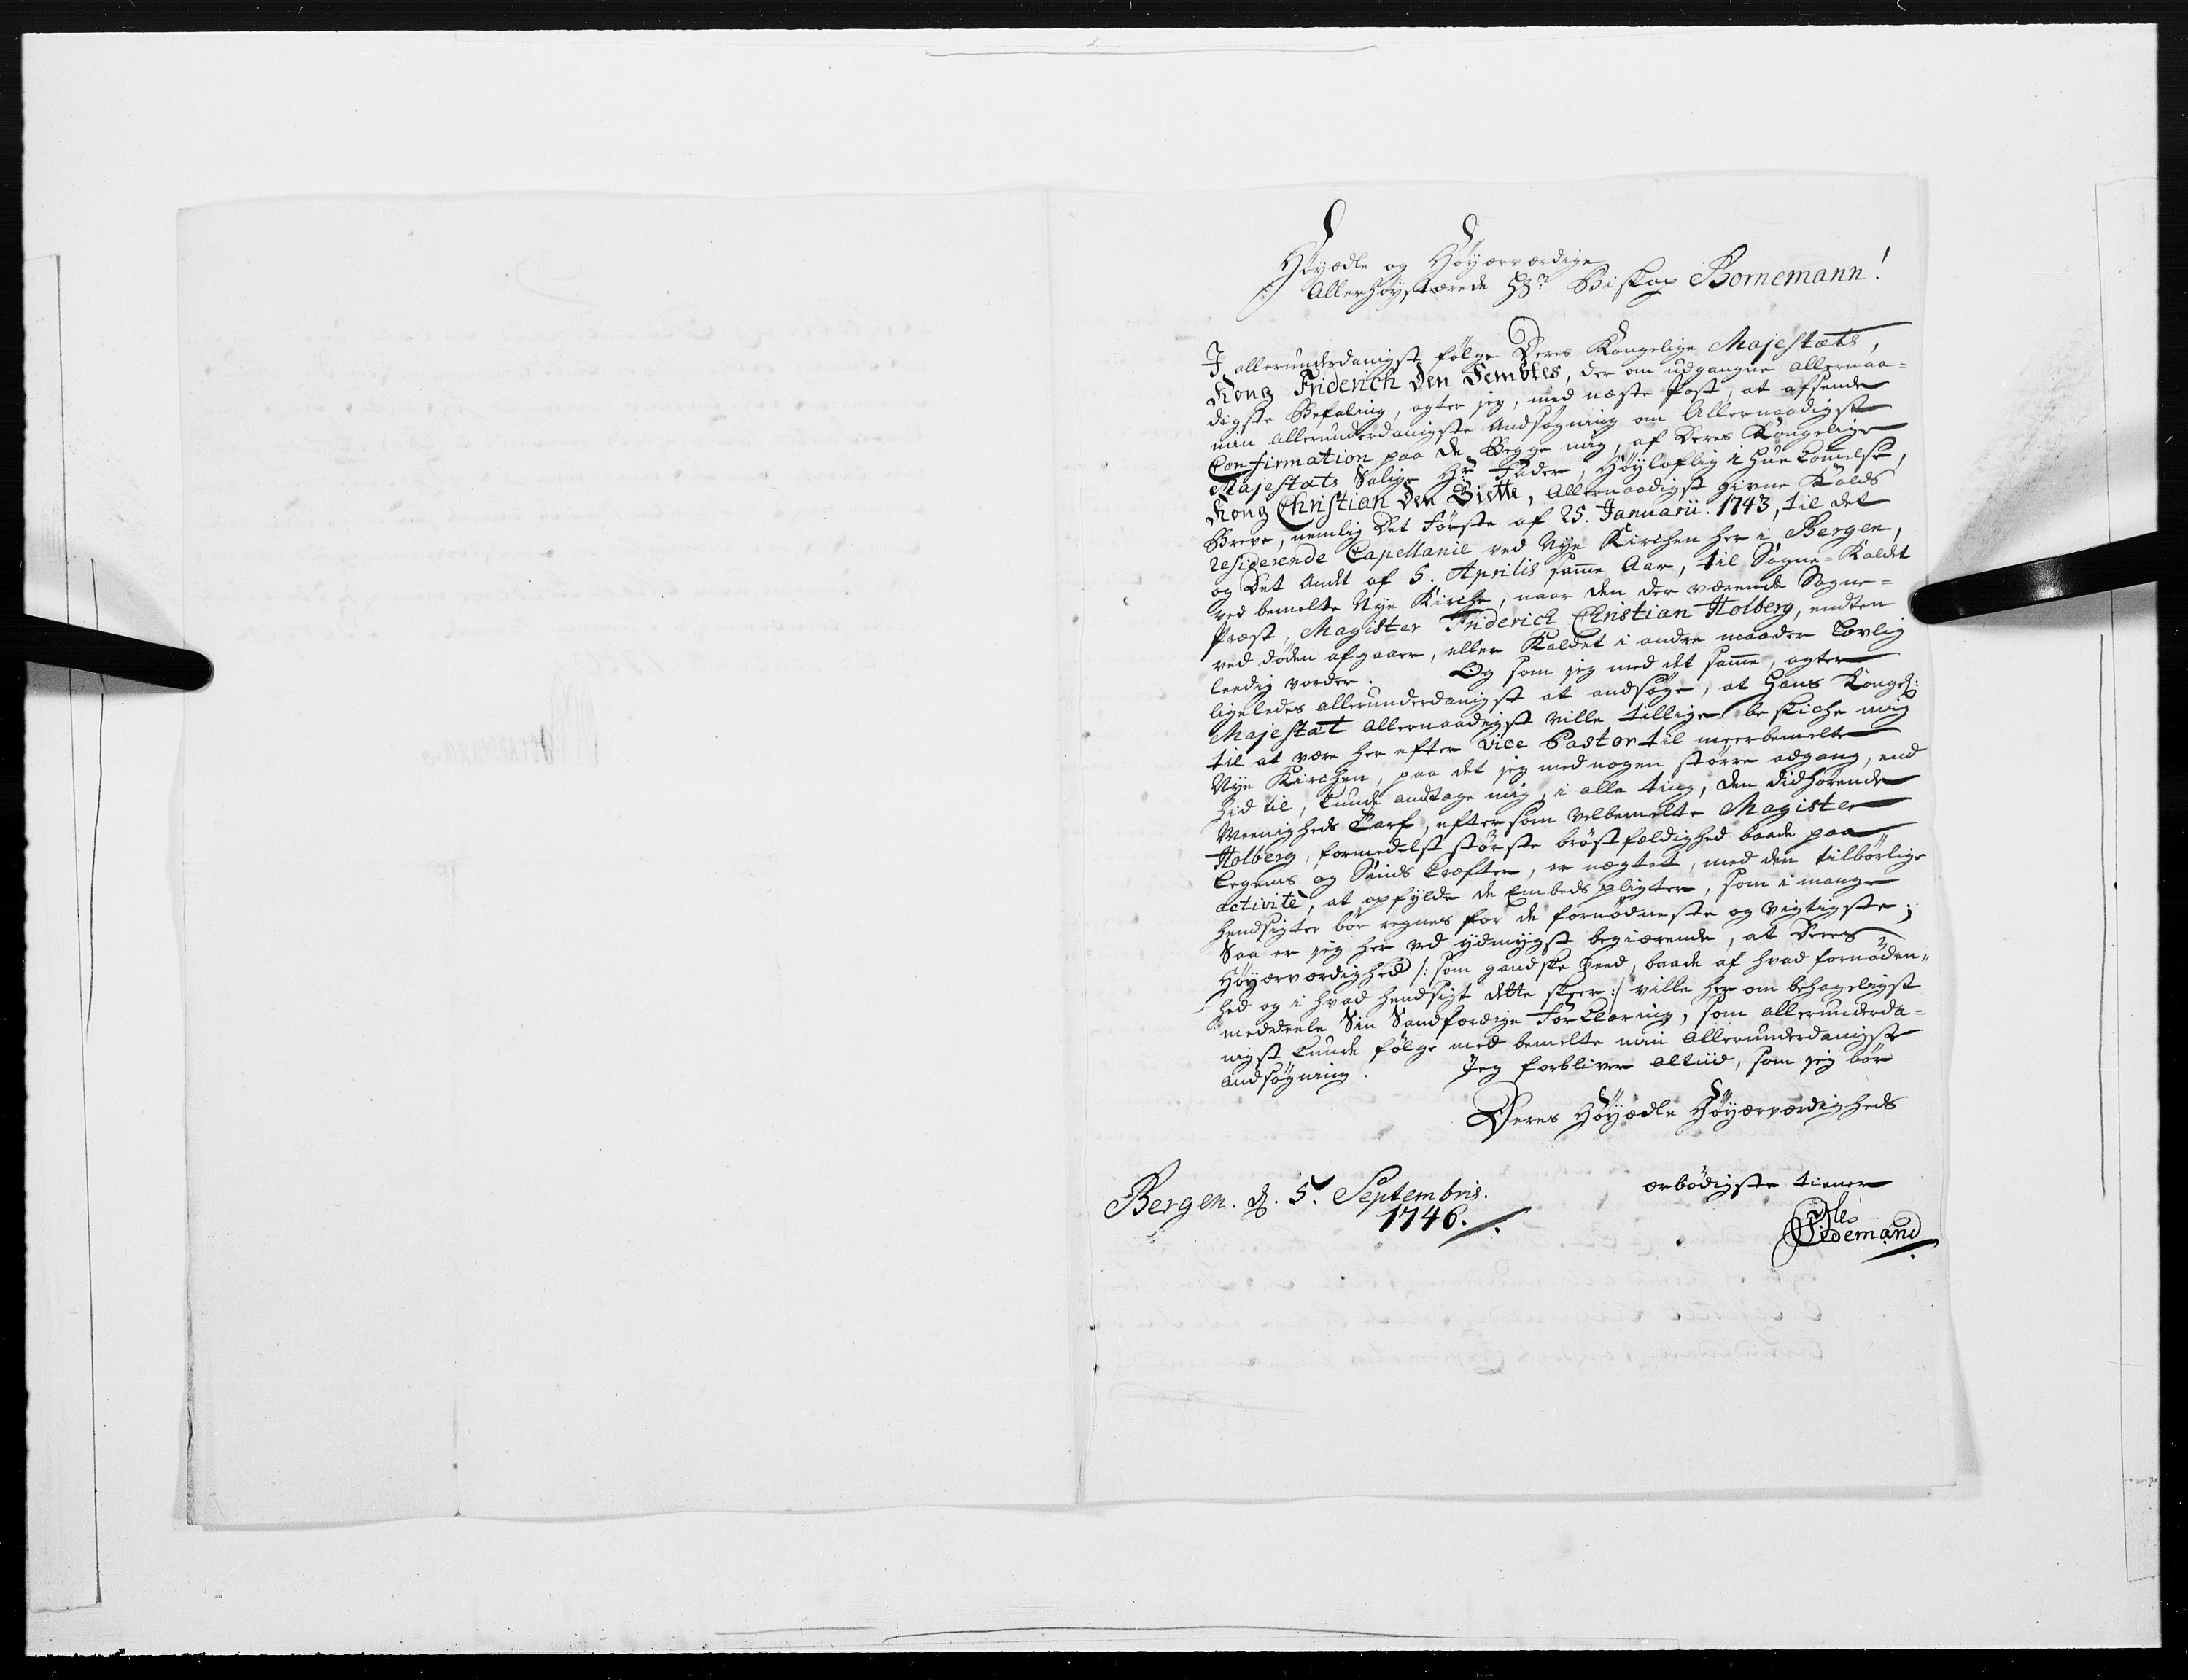 Høyædle og Høyærværdige
Allerhøystærede Hr. Biskop Bornemann!
I allerunderdanigst følge Deres Kongelige Majestæts,
Kong Friderich den Fembtes, der om udgangne allernaa-
digste Befaling, agter jeg, med næste Post, at afsende
min allerunderdanigste Andsøgning om Allernaadigst
Confirmation paa de Begge mig, af Deres Kongelige
Majestæts Salige Hr. Fader, Høylovlig ihuekommelse,
Kong Christian den Siette, Allernaadigst givne Kalds
Breve, nemlig Det Første af 25. Januarii. 1743, til det
residerende Capellanie ved Nye Kirchen her i Bergen,
og Det Andet af 5. Aprilis samme Aar, til Sogne-Kaldet
ved bemelte Nye Kirche, naar den der værende Sogne-
Præst, Magister Friderich Christian Holberg, endten
ved døden afgaaer, eller Kaldet i andre maader lovlig
leedig vorder. Og som jeg med det samme, agter
ligeledes allerunderdanigst at andsøge, at Hans Kongel:
Majestæt allernaadigst ville tillige beskiche mig
til at være her efter Vice Pastor til meerbemelte
Nye Kirchen, paa det jeg med nogen større adgang, end
hid til, kunde andtage mig, i alle ting, den didhørende
Meenigheds Tarf, efter som velbemelte Magister
Holberg, formedelst største brøstfældighed baade paa
Legems og Sinds kræfter, er nægtet, med den tilbørlige
activitè, at opfylde de Embeds pligter, som i mange
hendsigter bør regnes for de fornødneste og vigtigste;
Saa er jeg her ved ydmygst begiærende, at Deres
Høyærværdighed /: som gandske veed, baade af hvad fornøden-
hed og i hvad hendsigt dette skeer :/ ville her om behageligst
meddeele Sin Sandfærdige Forklaring, som allerunderda-
nigst kunde følge med bemelte min Allerunderdanigste
andsøgning. Jeg forbliver altiid, som jeg bør
Deres Høyædle Høyærværdigheds
ærbødigste tiener
Bergen. d. 5. Septembris.
1746.
Ole
Tidemand